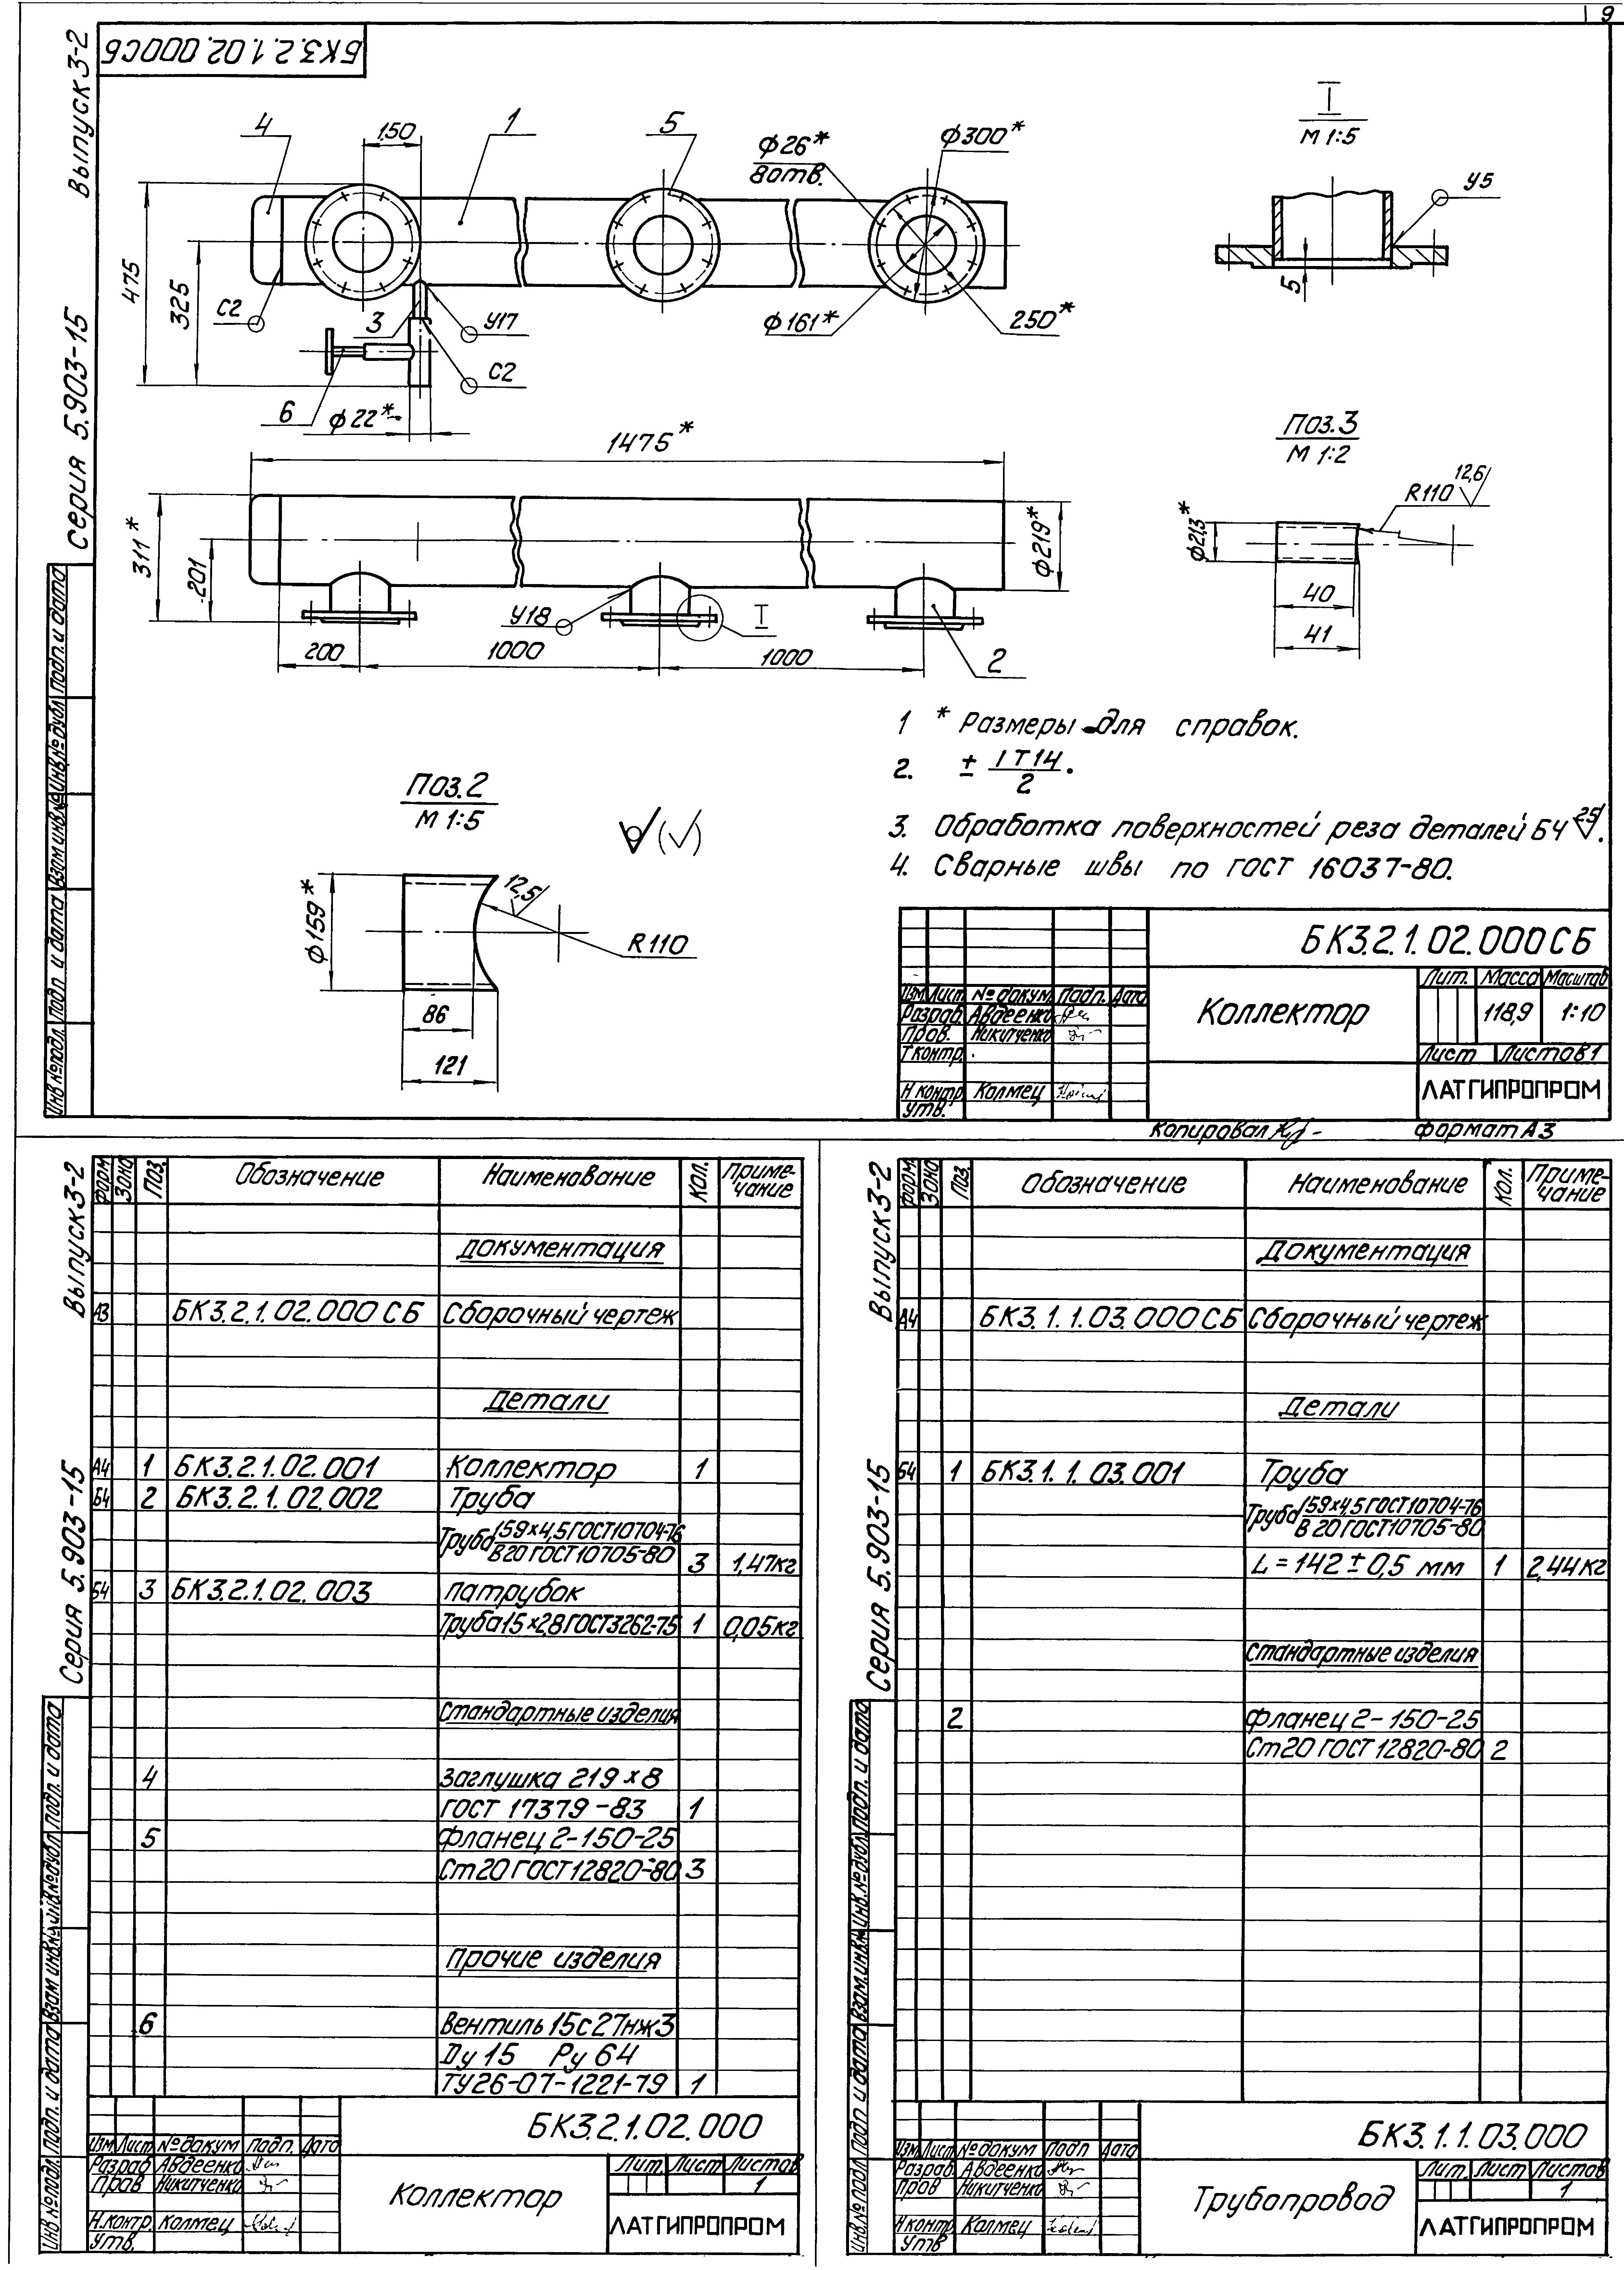 9
БК3.2.1.02.000СБ
Выпуск 3-2
Серия 5.903-15
4
150
1
5
ф26*
8отв.
ф300*
I
М 1:5
У5
5
475
325
С2
3
У17
С2
6
ф22*
ф161*
250*
1475*
Поз.3
М 1:2
12,6
R110
ф21,3*
40
41
311*
201
ф219*
У18
I
200
1000
1000
2
1 * Размеры для справок.
2. ± IT14/2.
3. Обработка поверхностей реза деталей БЧ 25.
4. Сварные швы по ГОСТ 16037-80.
Поз.2
М 1:5
ф159*
12,5
R110
86
121
Инв № подл. Подп. и дата Взам инв.№ Инв № дубл. Подп. и дата
БК3.2.1.02.000СБ
Изм Лист № докум. Подп. Дата
Разраб. Авдеенко
Пров. Никитченко
Т контр.
Н контр. Колмец
Утв.
Коллектор
Лит. Масса Масштаб
118,9 1:10
Лист Листов 1
ЛАТГИПРОПРОМ
Копировал
формат А3
Выпуск 3-2
Серия 5.903-15
форм. Зона Поз. Обозначение Наименование Кол. Примечание
Документация
А3 БК3.2.1.02.000 СБ Сборочный чертеж
Детали
А4 1 БК3.2.1.02.001 Коллектор 1
Б4 2 БК3.2.1.02.002 Труба
Труба 159х4,5 ГОСТ10704-76
В 20 ГОСТ10705-80 3 1,47кг
Б4 3 БК3.2.1.02.003 патрубок
Труба 15х2,8 ГОСТ3262-75 1 0,05кг
Стандартные изделия
4 Заглушка 219х8
ГОСТ 17379-83 1
5 фланец 2-150-25
Ст20 ГОСТ12820-80 3
Прочие изделия
6 Вентиль 15с27нж3
Dу 15 Ру 64
ТУ26-07-1221-79 1
Инв № подл Подп. и дата Взам инв.№ Инв № дубл Подп. и дата
БК3.2.1.02.000
Изм Лист № докум Подп. Дата
Разраб Авдеенко
Пров Никитченко
Н.контр. Колмец
Утв.
Коллектор
Лит. Лист Листов
1
ЛАТГИПРОПРОМ
Выпуск 3-2
Серия 5.903-15
форм. Зона Поз. Обозначение Наименование Кол. Примечание
Документация
А4 БК3.1.1.03.000 СБ Сборочный чертеж
Детали
Б4 1 БК3.1.1.03.001 Труба
Труба 159х4,5 ГОСТ10704-76
В 20 ГОСТ10705-80
L=142±0,5 мм 1 2,44кг
Стандартные изделия
2 фланец 2-150-25
Ст20 ГОСТ 12820-80 2
Инв № подл Подп и дата Взам.инв.№ Инв.№ дубл Подп. и дата
БК3.1.1.03.000
Изм Лист № докум Подп Дата
Разраб Авдеенко
Пров Никитченко
Н контр Колмец
Утв
Трубопровод
Лит. Лист Листов
1
ЛАТГИПРОПРОМ